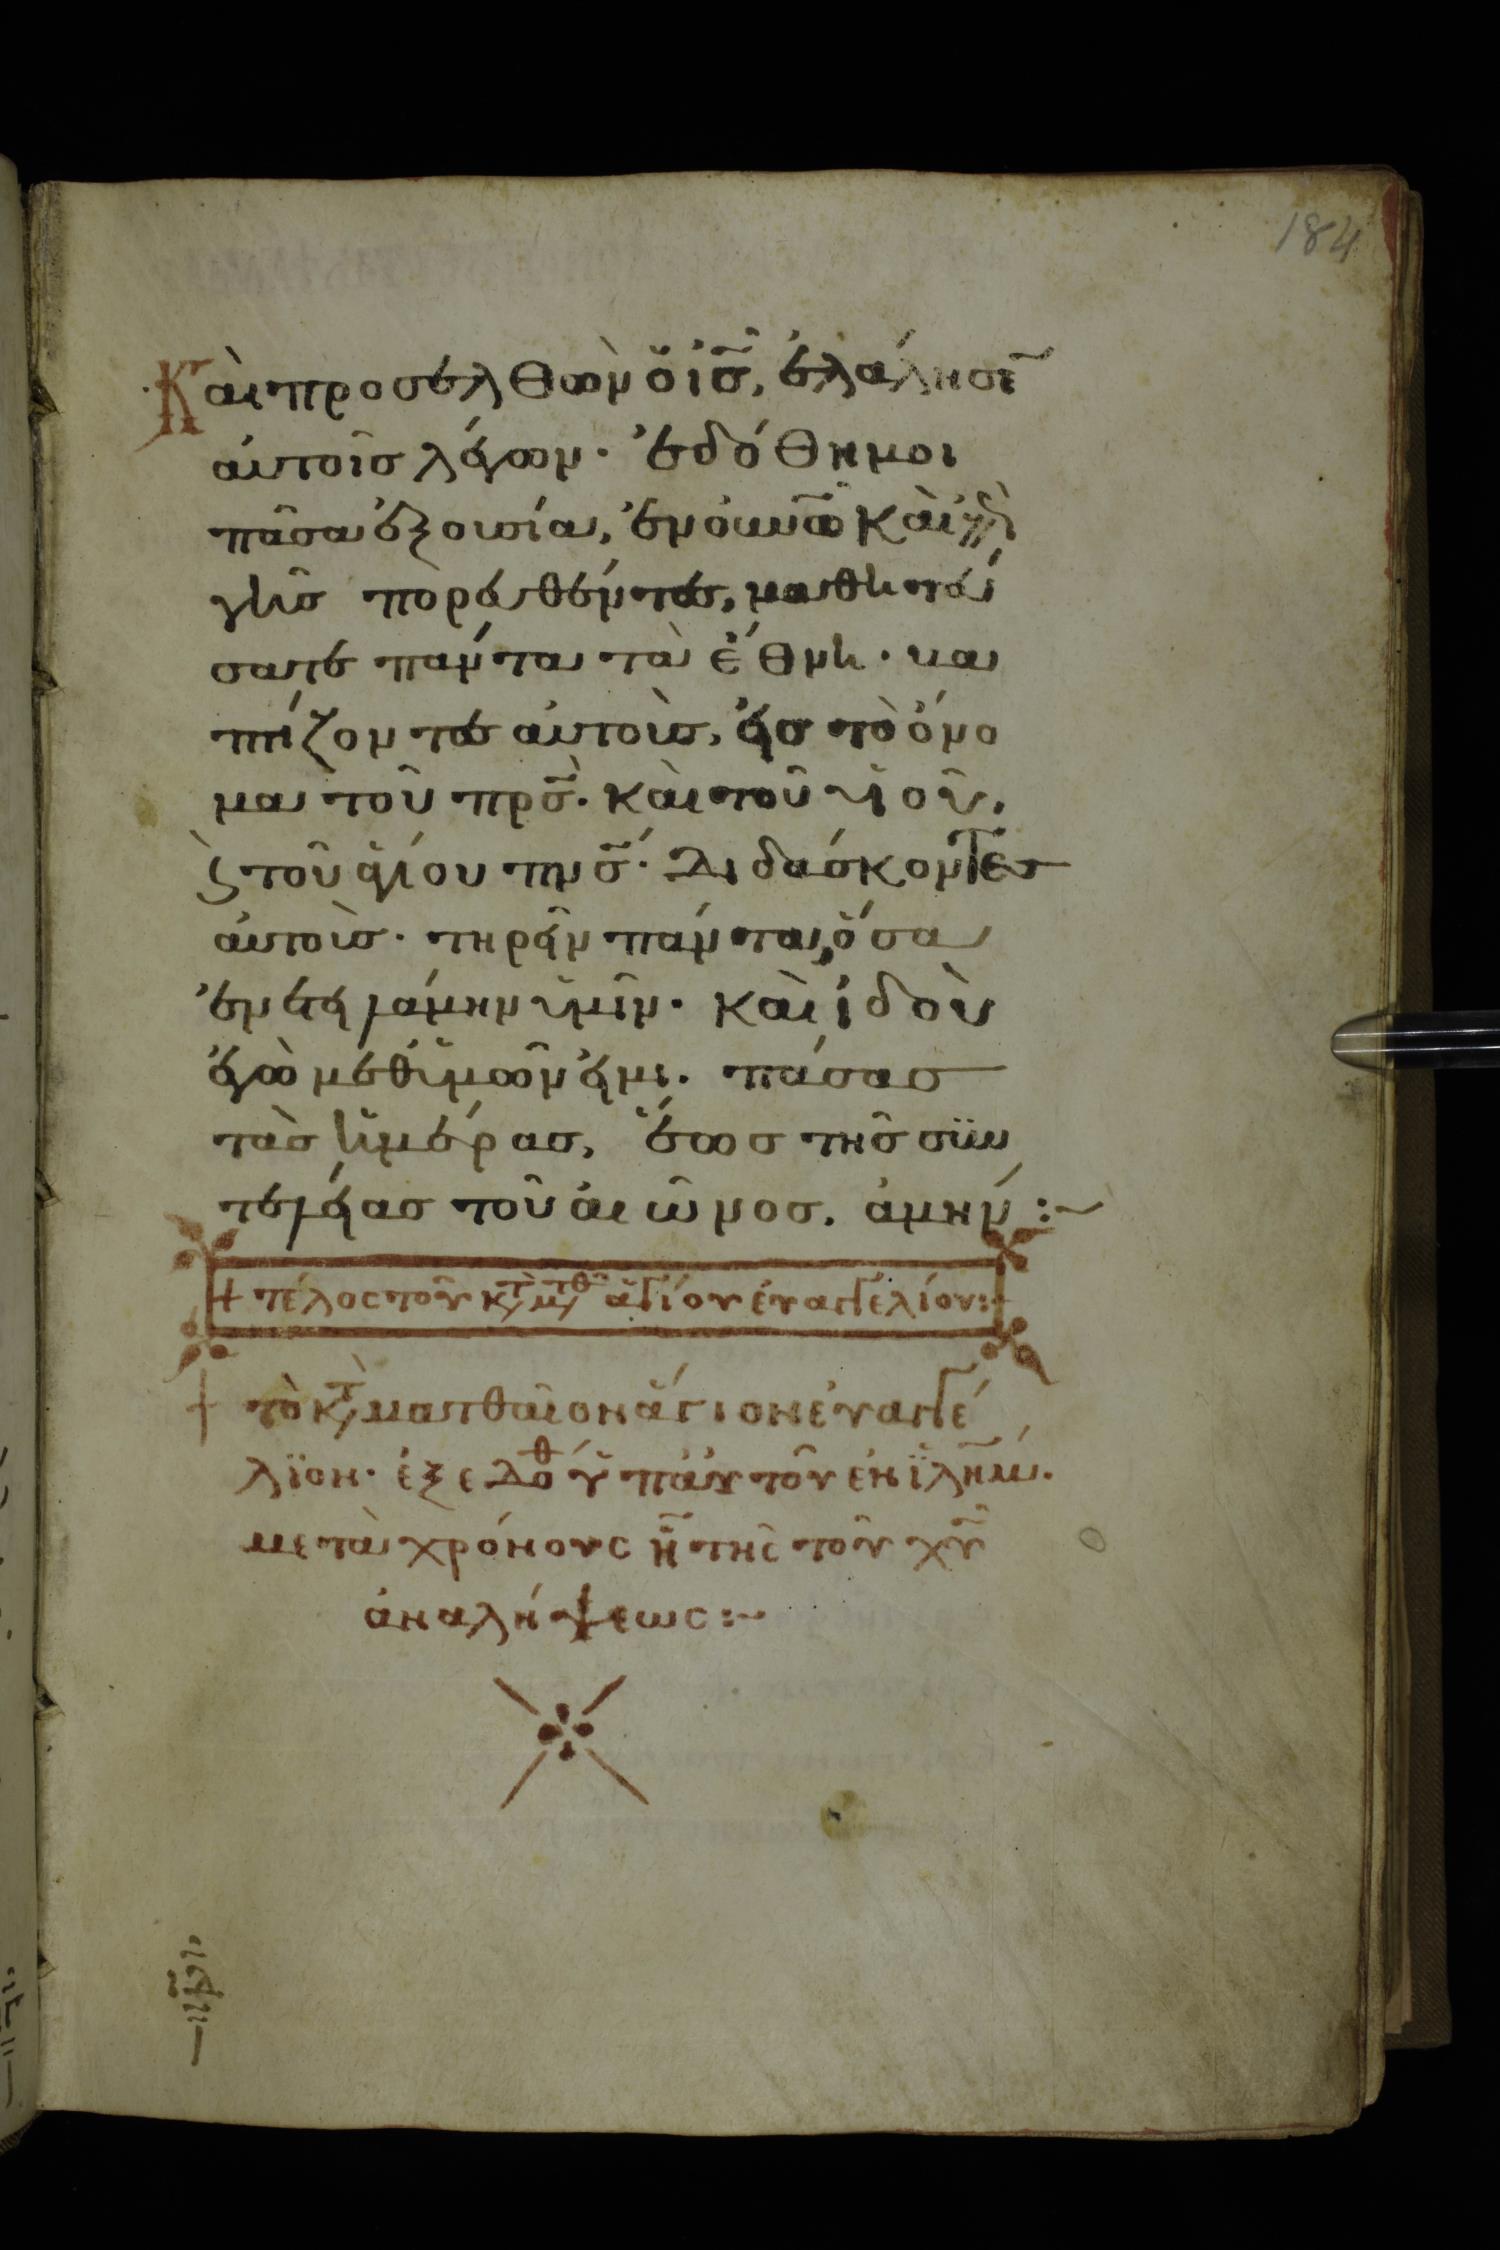 184
Καὶ προσελθὼν ὁ ι̅σ̅, ἐλάλησε̅
αὐτοῖσ λέγων. ἐδόθη μοι
πᾶσα ἐξουσία, ἐν οὐνω̅ καὶ ἐπὶ
γῆσ πορευθέντεσ, μαθητεύ
σατε πάντα τὰ ἔθνη. βα
πτίζοντεσ αὐτοὺσ, εἰσ τὸ ὄνο
μα τοῦ πρ̅σ̅. καὶ τοῦ υἱοῦ,
ϗ τοῦ ἁγίου πνσ̅. Διδάσκοντεσ
αὐτοὺσ. τηρεῖν πάντα, ὅσα
ἐνετειλάμην ὑμῖν. καὶ ἰδοὺ
ἐγὼ μεθ ὑμῶν εἰμι. πάσασ
τὰσ ἡμέρασ, ἕωσ τῆσ συν
τελείασ τοῦ αἰῶνοσ. ἀμήν :~
+ τέλος τοῦ κτ μτθ ἁγίου ἐυαγγελίου:+
+ τὸ κτ ματθαῖον ἅγιον ἐυαγγέ
λϊον. ἐξεδόθ ὑπ αὐτοῦ ἐν ϊ̅λ̅η̅μ̅.
μετὰ χρόνους η̅ τῆς τοῦ χ̅υ̅
ἀναλήψεως :~